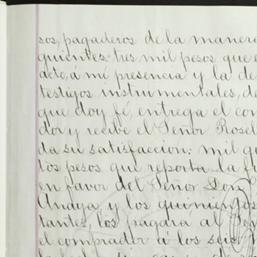 sos, pagaderos de la manera
guiente: tres mil pesos que e
acto, á mi presencia y la de
testigos instrumentales, de
que doy fé, entrega el com
dor y recibe el Señor Rosel
da su satisfaccion: mil qu
tos pesos que reporta la fi
en favor del Señor Don
Anaya y los quinientos
tantes, los pagará al Se
el comprador á los seis